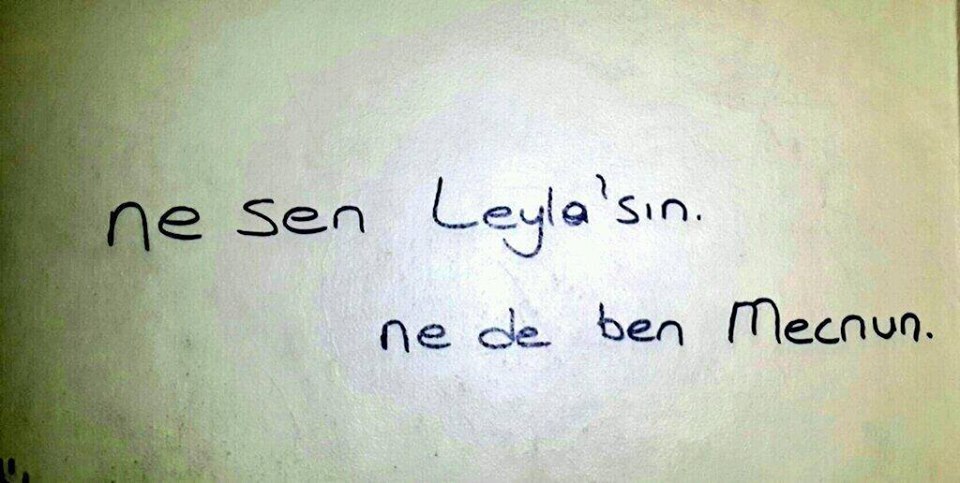 ne sen Leyla'sın.
ne de ben Mecnun.